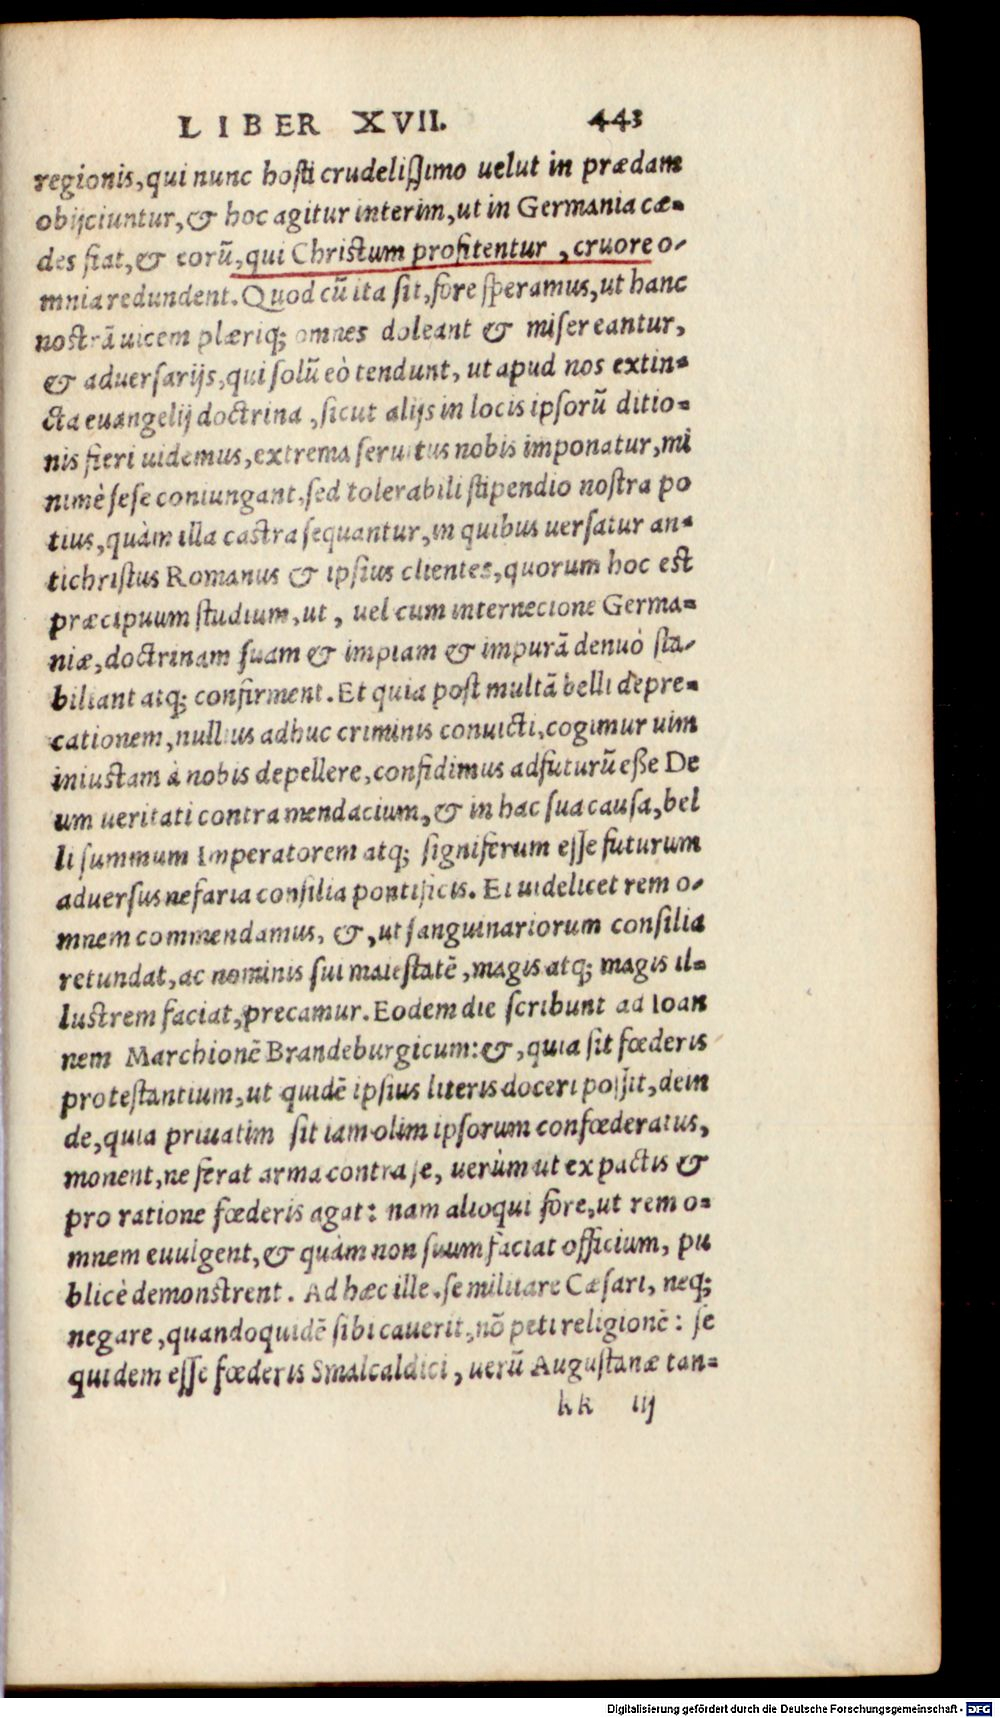 LIBER XVII. 443
regionis, qui nunc hosti crudelissimo uelut in prædam
obijciuntur, & hoc agitur interim, ut in Germania cæ-
des fiat, & eorũ, qui Christum profitentur, cruore o-
mnia redundent. Quod cũ ita sit, fore speramus, ut hanc
nostrã uicem plæriq; omnes doleant & misereantur,
& aduersarijs, qui solũ eò tendunt, ut apud nos extin-
cta euangelij doctrina, sicut alijs in locis ipsorũ ditio-
nis fieri uidemus, extrema seruitus nobis imponatur, mi
nimè sese coniungant, sed tolerabili stipendio nostra po
tius, quàm illa castra sequantur, in quibus uersatur an-
tichristus Romanus & ipsius clientes, quorum hoc est
præcipuum studium, ut, uel cum internecione Germa-
niæ, doctrinam suam & impiam & impurã denuò sta-
biliant atq; confirment. Et quia post multã belli depre-
cationem, nullius adhuc criminis conuicti, cogimur uim
iniustam à nobis depellere, confidimus adfuturũ eße De
um ueritati contra mendacium, & in hac sua causa, bel
li summum Imperatorem atq; signiferum esse futurum
aduersus nefaria consilia pontificis. Ei uidelicet rem o-
mnem commendamus, &, ut sanguinariorum consilia
retundat, ac nominis sui maiestatẽ, magis atq; magis il-
lustrem faciat, precamur. Eodem die scribunt ad Ioan
nem Marchionẽ Brandeburgicum: &, quia sit fœderis
protestantium, ut quidẽ ipsius literis doceri possit, dein
de, quia priuatim sit iam olim ipsorum confœderatus,
monent, ne ferat arma contra se, uerùm ut ex pactis &
pro ratione fœderis agat: nam alioqui fore, ut rem o-
mnem euulgent, & quàm non suum faciat officium, pu
blicè demonstrent. Ad hæc ille, se militare Cæsari, neq;
negare, quandoquidẽ sibi cauerit, nõ peti religionẽ: se
quidem esse fœderis Smalcaldici, uerũ Augustanæ tan-
kk iij
Digitalisierung gefördert durch die Deutsche Forschungsgemeinschaft - DFG